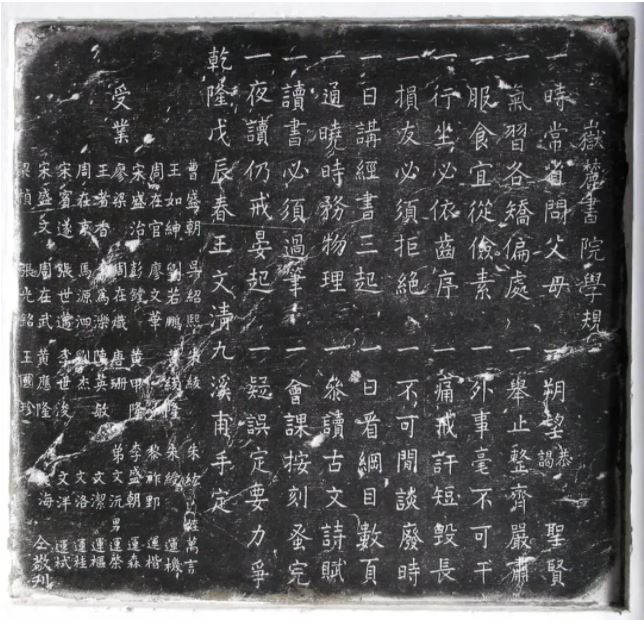 嶽麓書院學規
一時常省問父母 朔望恭謁聖賢
一氣習各矯偏處 一舉止整齊嚴肅
一服食宜從儉素 一外事毫不可干
一行坐必依齒序 一痛戒訐短毀長
一損友必須拒絕 一不可閒談廢時
一日講經書三起 一日看綱目數頁
一通曉時務物理 一參讀古文詩賦
一讀書必須過筆 一會課按刻蚤完
一夜讀仍戒晏起 一疑誤定要力爭
乾隆戊辰春王文清九溪甫手定
受業
曹盛朝 吳紹熙 朱綾 朱紘 萬言
王如紳 劉若鵬 朱綬 運機
周在官 廖文華 黎祚郢 運楷
宋盛治 彭鏜 黃甲隆 李盛朝 運森
廖 周在熾 唐珊 弟文沅 男運棻
王耆香 為濼 陳英敏 文潔 運樞
周在東 馬源泗 劉杰 文洛 運桂
宋賓遂 張世 李世浚 文洋 運栻
宋盛文 周在武 黃應隆 海 仝敬刊
梁楨 張光銘 王國珍